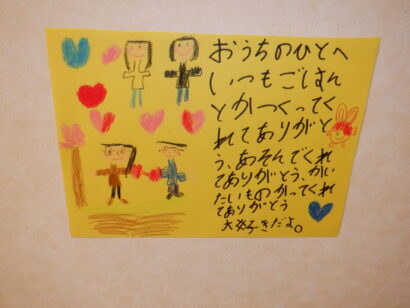 おうちのひとへ
いつもごはん
とかつくってく
れてありがと
う、あそんでくれ
てありがとう、かい
たいものかってくれ
てありがとう
大好きだよ。